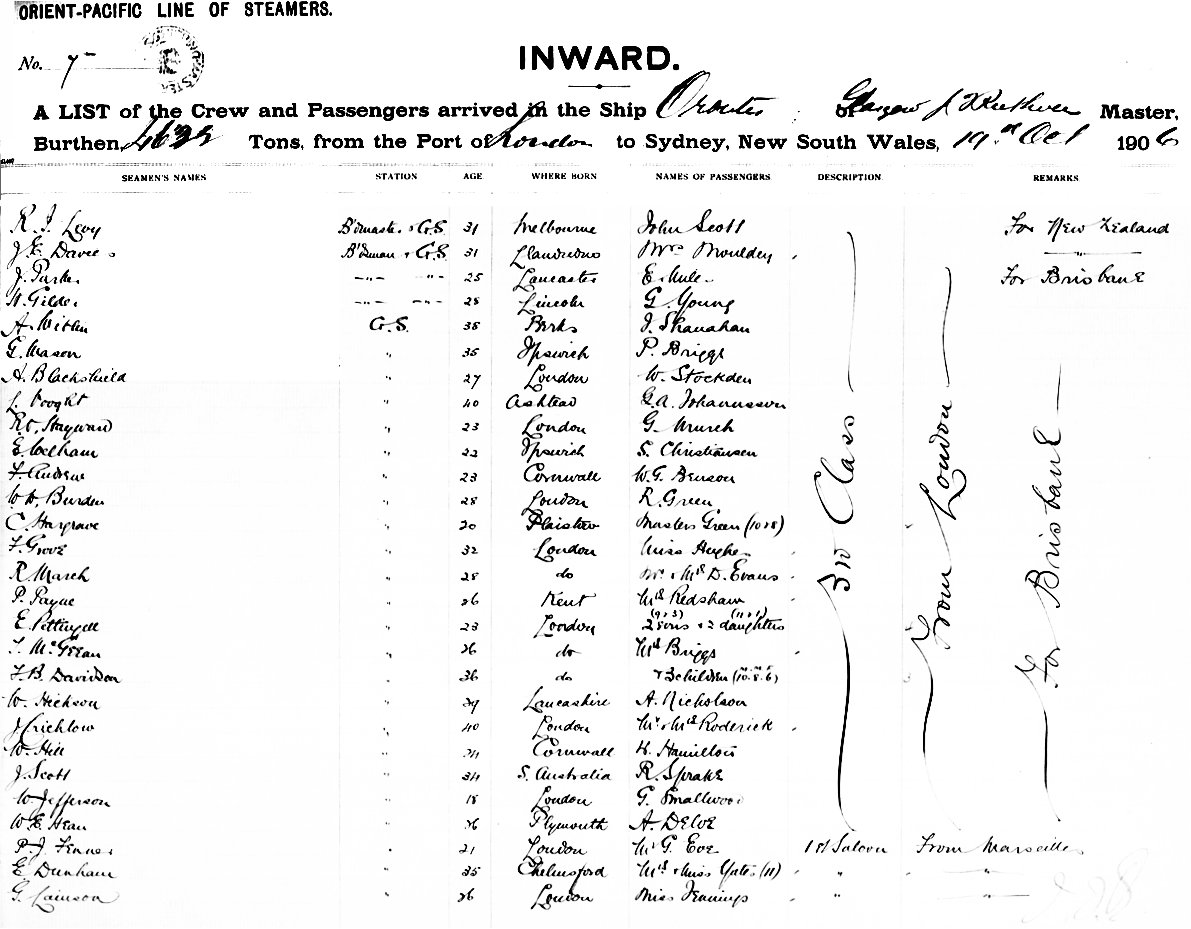 ORIENT-PACIFIC LINE OF STEAMERS.
No. 7
INWARD.
A LIST of the Crew and Passengers arrived in the Ship Orontes of Glasgow J. F. Ruthven Master,
Burthen, 4622 Tons, from the Port of London to Sydney, New South Wales, 19th Oct 1906
SEAMEN'S NAMES STATION AGE WHERE BORN NAMES OF PASSENGERS DESCRIPTION REMARKS
R. J. Levy B'dmaster & G.S. 31 Melbourne John Scott For New Zealand
J. E. Davies B'dsman & G.S. 31 Llandudno Mrs Moulden "
J. Parker -"- -"- 25 Lancaster E. Mules For Brisbane
Gilder -"- -"- 28 Lincoln G. Young
A. G.S. 38 Parks J. Shanahan
G. Mason " 35 Ipswich P. Briggs
A. Blachshield " 27 London W. Stockden
L. Vooght " 40 Ashtead G. A. Johannsson
Hayward " 23 London G. Murch
E. Welham " 22 Ipswich S. Christiansen
F. Andrew " 23 Cornwall W. G. Benson
W. W. Burden " 28 London R. Green
C. Hargrave " 20 Plaistow Masters Green (10 & 8)
F. Grove " 32 London Miss Hughes
R. March " 28 do Mr & Mrs D. Evans
P. Payne " 26 Kent Mrs Redshaw
E. Pettingell " 23 London 2 sons & 2 daughters
T. McGrean " 26 do Mrs Briggs
F. B. Davidson " 36 do & 3 children (10. 8. 6)
W. Hickson " 29 Lancashire A. Nicholson
J. Crichlow " 40 London Mr & Mrs Roderick
W. Hill " 24 Cornwall Hamilton
J. Scott " 34 S. Australia R. Sprake
W. Jefferson " 18 London G. Smallwood
W. E. Hean " 26 Plymouth A. Delve
3rd Class
From London
For Brisbane
P. J. Fenner " 21 London Mr G. Eve 1st Saloon From Marseilles
E. Dunham " 35 Chelmsford Mrs & Miss Yates (11) " -"-
G. " 26 London Miss Jennings " -"-